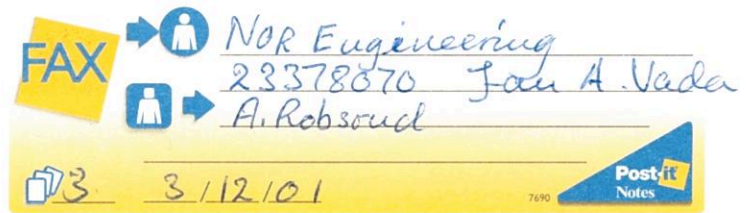 FAX
NOR Engineering
23378070 Jan A. Vada
A. Robsrud
3 3/12/01
7690
Post-it
Notes